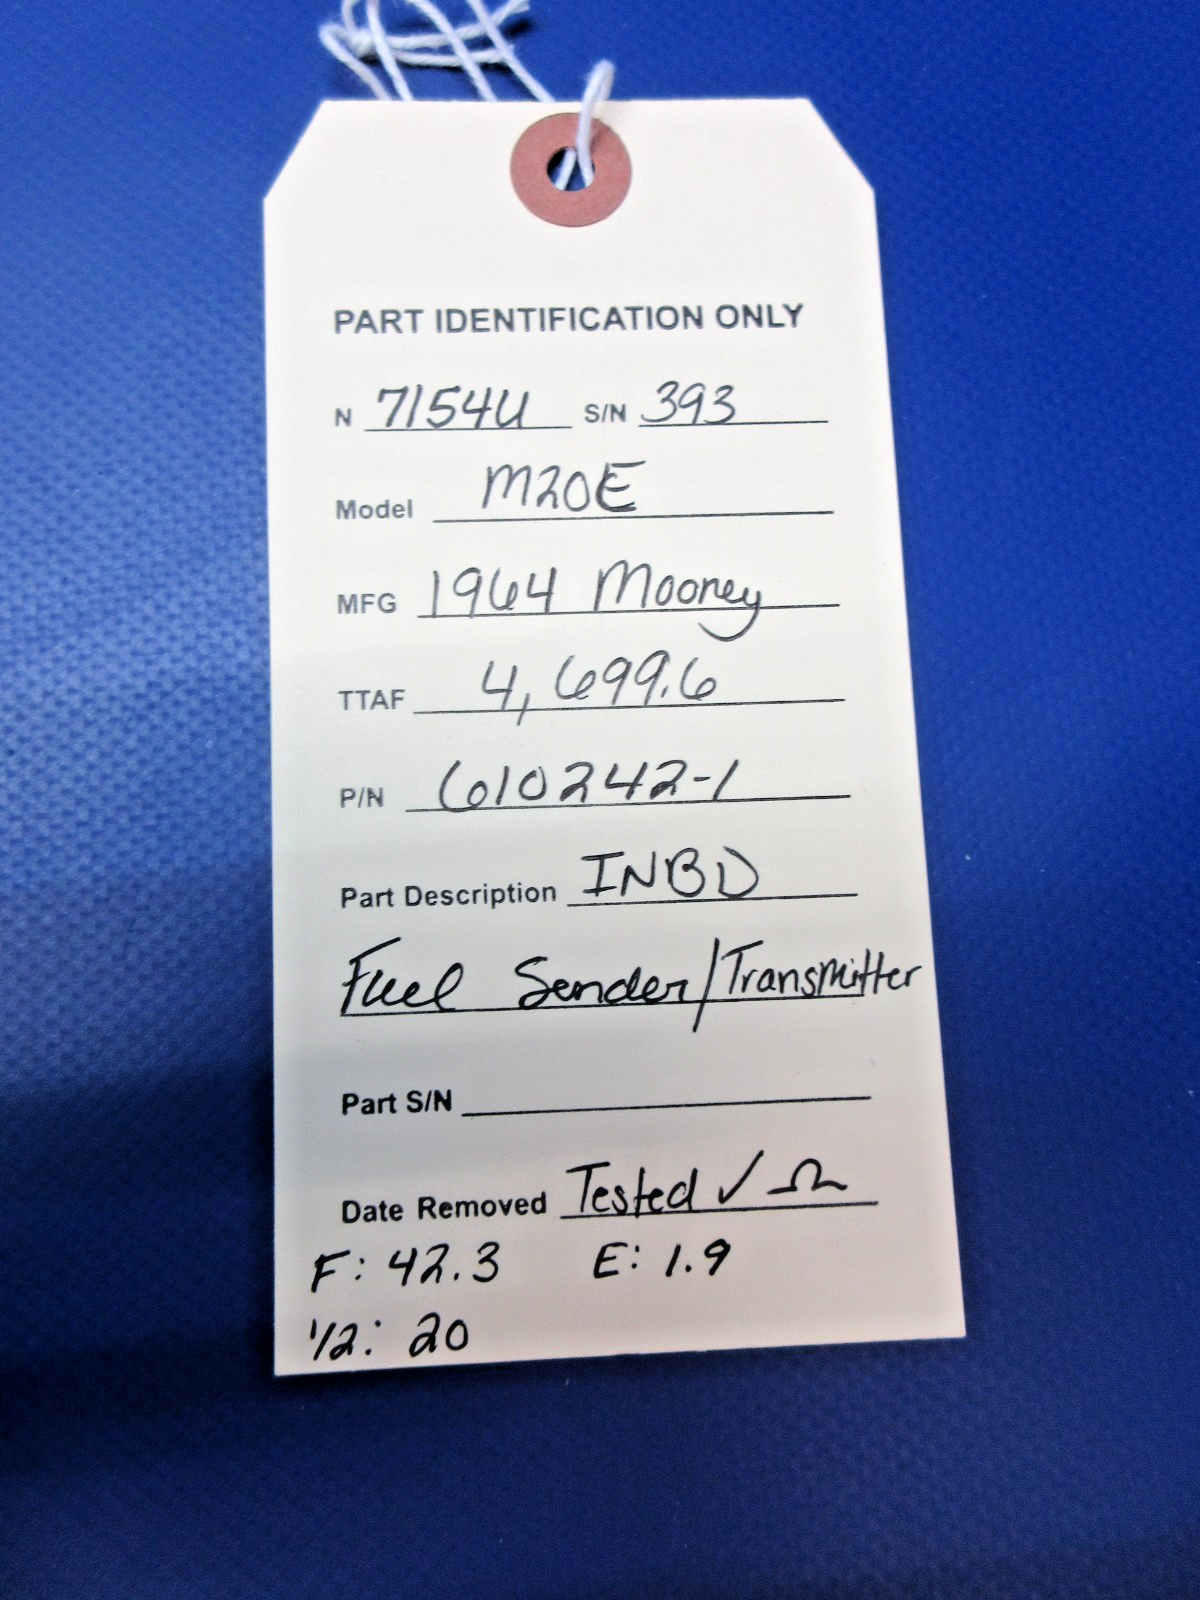 PART IDENTIFICATION ONLY
N 7154U S/N 393
Model M20E
MFG 1964 Mooney
TTAF 4,699.6
P/N 610242-1
Part Description INBD
Fuel Sender/Transmitter
Part S/N
Date Removed Tested ✓ Ω
F: 42.3 E: 1.9
1/2: 20